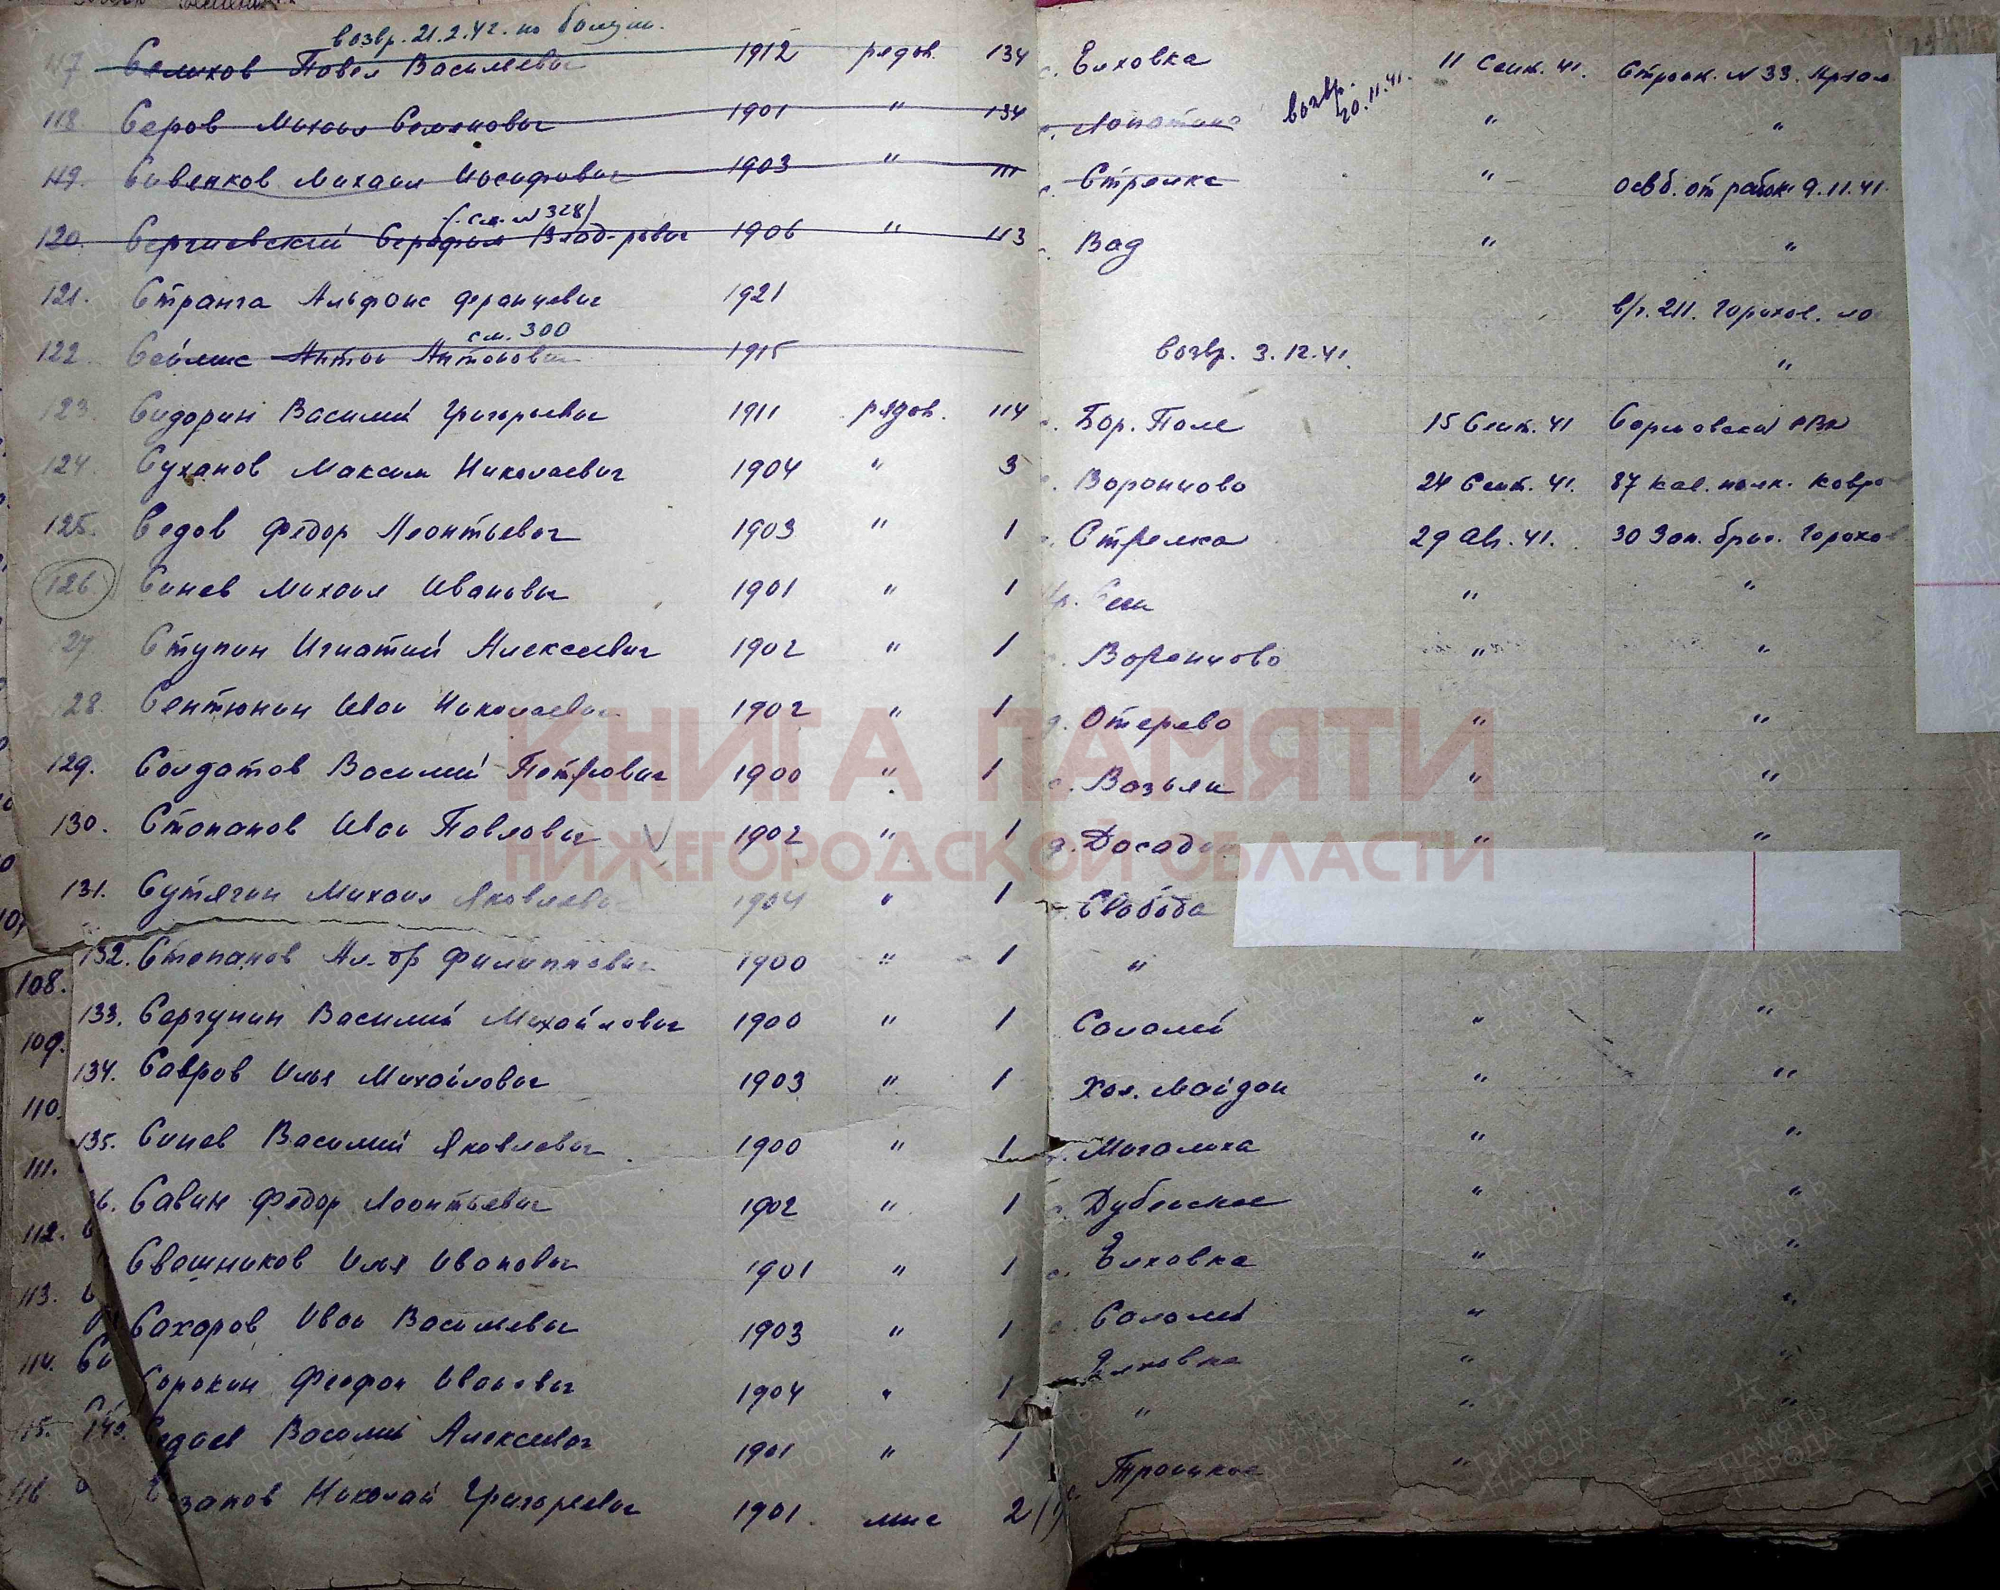 возвр. 21.2.42. по болезн.
117 Селихов Павел Васильевич 1912 рядов. 134 с. Елховка 11 Сент. 41. Строит. N 33. Арзам
возвр. 20.11.41.
118. Серов Михаил Семенович 1901 " 134 Лопатино " "
119. Сивенков Михаил Иосифович 1903 " 111 с. Стрелка " освб. от работ 9.11.41.
(см. N 328)
120. Сергиевский Серафим Влад-рович 1906 " 113 с. Вад " "
121. Странга Альфонс Францевич 1921 в/г. 211. Горохов. ла
см. 300
122. Сейлис Антон Антонович 1915 возвр. 3.12.41. "
123. Сидорин Василий Григорьевич 1911 рядов. 114 с. Бор. Поле 15 Сент. 41 Сормовский РВК
124. Суханов Максим Николаевич 1904 " 3 с. Воронцово 24 Сент. 41. 87 кав. полк. Ковров
125. Седов Федор Леонтьевич 1903 " 1 Стрелка 29 Ав. 41. 30 Зап. бриг. Горохов
126 Синев Михаил Иванович 1901 " 1 " "
127 Ступин Игнатий Алексеевич 1902 " 1 с. Воронцово " "
128. Сентюнин Иван Николаевич 1902 " 1 д. Отерево " "
129. Солдатов Василий Петрович 1900 " 1 с. Вазьян " "
130. Степанов Иван Павлович 1902 " 1 д. Досад " "
131. Сутягин Михаил Яковлевич 1904 " 1 Свобода
132. Степанов Ал-др Филиппович 1900 " 1 "
133. Сергунин Василий Михайлович 1900 " 1 Салалей " "
134. Савров Илья Михайлович 1903 " 1 Хол. Майдан " "
135. Синев Василий Яковлевич 1900 " 1 Мигалиха " "
36. Савин Федор Леонтьевич 1902 " 1 с. Дубенское " "
Свешников Илья Иванович 1901 " 1 с. Елховка " "
Сахаров Иван Васильевич 1903 " 1 с. Салалей " "
Сорокин Феофан Иванович 1904 " 1 Елховка " "
140. Седаев Василий Алексеевич 1901 " 1 " " "
занов Николай Григорьевич 1901 мис 2 с. Троицкое "
108.
109.
110.
111.
112.
113.
114.
115.
116
КНИГА ПАМЯТИ
НИЖЕГОРОДСКОЙ ОБЛАСТИ
ПАМЯТЬ НАРОДА